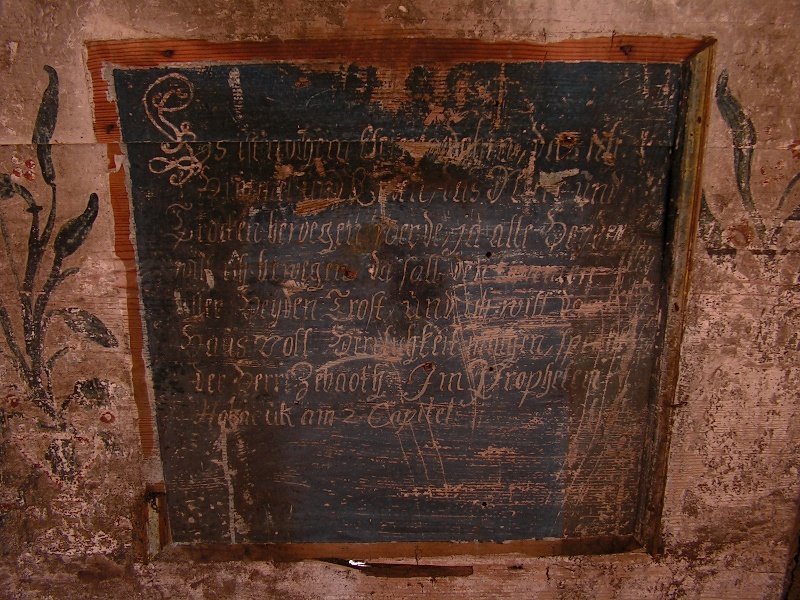 Es ist noch ein kl dahin, das ich
Himmel und Erden, das Meer und
Trocken bewegen werde, ja alle Heyden
will ich bewegen, da soll den kommen
aller Heyden Trost, und ich will das
Haus voll Herrlichkeit machen, spricht
der Herr Zebaoth. Im Propheten
Habacuk am 2 Capitel.